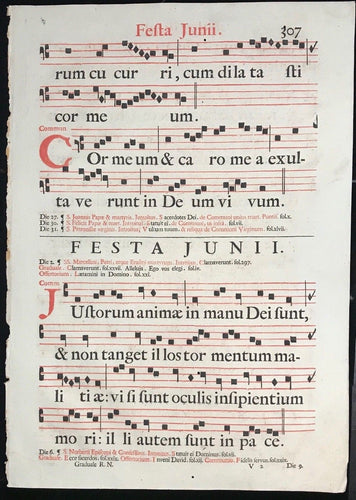 Festa Junii. 307
rum cu cur ri, cum di la ta sti
cor me um.
Commun.
COr me um & ca ro me a exul-
ta ve runt in De um vi vum.
Die 27. ¶ S. Joannis Papæ & martyris. Introitus. Sacerdotes Dei. de Communi unius mart. Pontif. fol.x.
Die 30. ¶ S. Felicis Papæ & mart. Introitus. Statuit ei. de Communi, ut infra fol.vii.
Die 31. ¶ S. Petronillæ virginis. Introitus. Vultum tuum. & reliqua de Communi Virginum. fol.xlvii.
FESTA JUNII.
Die 2. ¶ SS. Marcellini, Petri, atque Erasmi martyrum. Introitus. Clamaverunt. fol.297.
Graduale. Clamaverunt. fol.xxvii. Alleluja. Ego vos elegi. fol.iv.
Offertorium. Lætamini in Domino. fol.xxi.
Comm.
JUstorum animæ in manu Dei sunt,
& non tanget il los tor mentum ma-
li tiæ: vi si sunt oculis insipientium
mo ri: il li autem sunt in pa ce.
Die 6. ¶ S. Norberti Episcopi & Confessoris. Introitus. Statuit ei Dominus. fol.vii.
Graduale. Ecce sacerdos. fol.xxxix. Offertorium. Inveni David. fol.xii. Communio. Fidelis servus. fol.xxxix.
Graduale R. N. V 2 Die 9.